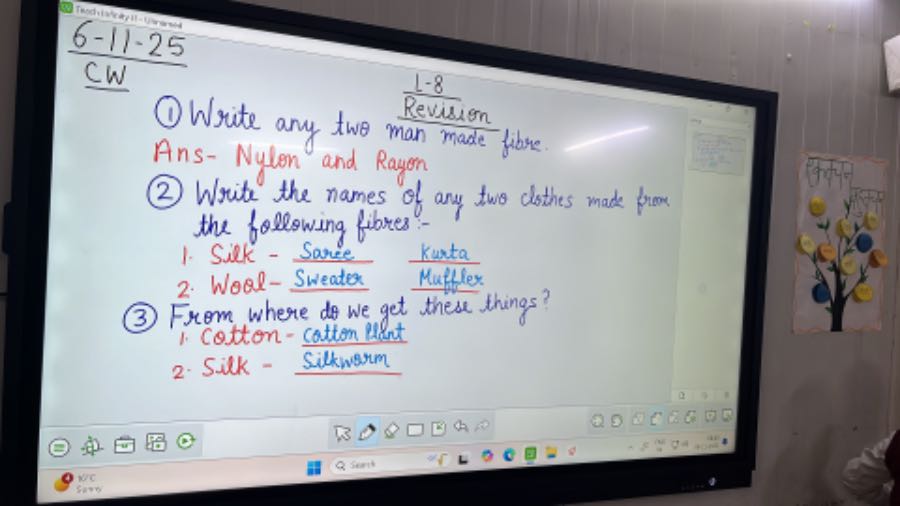 Teach Infinity
6-11-25
CW
L-8
Revision
① Write any two man made fibre.
Ans- Nylon and Rayon
② Write the names of any two clothes made from
the following fibres :-
1. Silk - Saree Kurta
2. Wool- Sweater Muffler
③ From where do we get these things?
1. Cotton - Cotton Plant
2. Silk - Silkworm
Search
Sunny